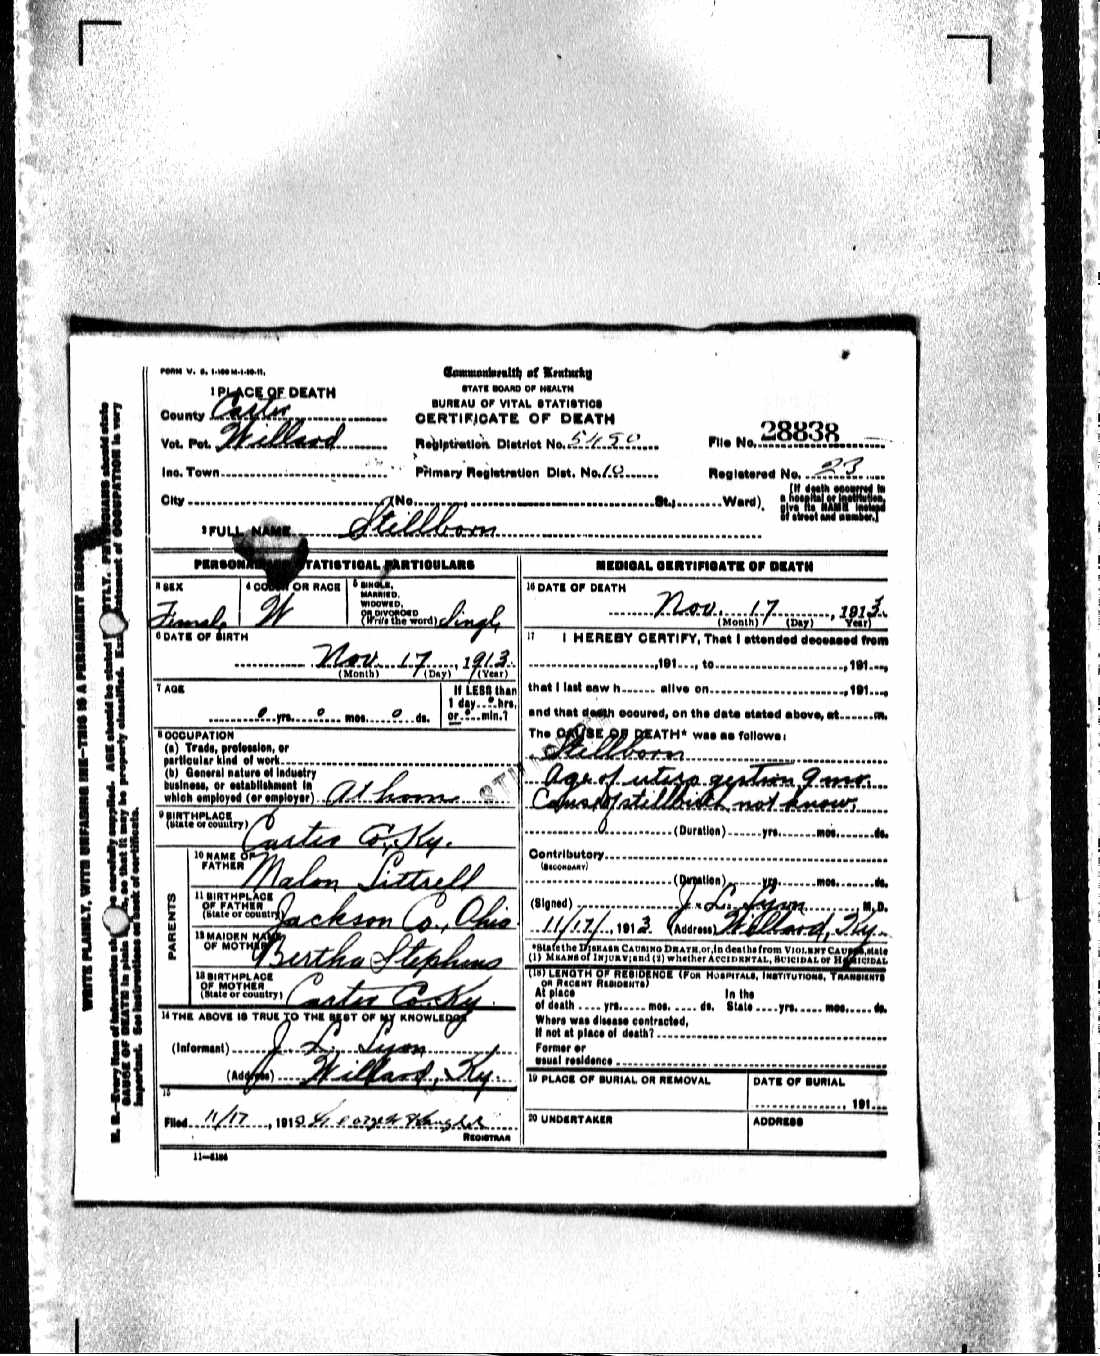 FORM V. S. 1-100 M-1-20-11.
Commonwealth of Kentucky
STATE BOARD OF HEALTH
BUREAU OF VITAL STATISTICS
CERTIFICATE OF DEATH
1 PLACE OF DEATH
County Carter
Vot. Pct. Willard
Registration District No. 5490
File No. 28838
Inc. Town
Primary Registration Dist. No. 10
Registered No. 23
City (No. St.; Ward)
[If death occurred in
a hospital or institution,
give its NAME instead
of street and number.]
2 FULL NAME Stillborn
PERSONAL STATISTICAL PARTICULARS
3 SEX
Female
4 COLOR OR RACE
W
5 SINGLE,
MARRIED,
WIDOWED,
OR DIVORCED
(Write the word) Single
6 DATE OF BIRTH
Nov. 17, 1913.
(Month) (Day) (Year)
7 AGE
0 yrs. 0 mos. 0 ds.
If LESS than
1 day 0 hrs,
or 0 min.?
8 OCCUPATION
(a) Trade, profession, or
particular kind of work
(b) General nature of industry
business, or establishment in
which employed (or employer) At home
9 BIRTHPLACE
(State or country) Carter Co, Ky.
PARENTS
10 NAME OF
FATHER Malon Littrell
11 BIRTHPLACE
OF FATHER
(State or country) Jackson Co., Ohio
12 MAIDEN NAME
OF MOTHER Bertha Stephens
13 BIRTHPLACE
OF MOTHER
(State or country) Carter Co. Ky.
14 THE ABOVE IS TRUE TO THE BEST OF MY KNOWLEDGE
(Informant) J. L. Lyon
(Address) Willard, Ky.
15
Filed 11/17, 1913
REGISTRAR
11-5184
MEDICAL CERTIFICATE OF DEATH
16 DATE OF DEATH
Nov. 17, 1913.
(Month) (Day) Year)
17 I HEREBY CERTIFY, That I attended deceased from
, 191 , to , 191 ,
that I last saw h alive on , 191 ,
and that death occured, on the date stated above, at m.
The CAUSE OF DEATH* was as follows:
Stillborn
Age of utero gestion 9 mo.
Cause of stillbirth not know.
(Duration) yrs. mos. ds.
Contributory
(SECONDARY)
(Duration) yrs. mos. ds.
(Signed) J. L. Lyon M.D.
11/17/, 1913 (Address) Willard, Ky.
*State the DISEASE CAUSING DEATH, or, in deaths from VIOLENT CAUSES, state
(1) MEANS of INJURY; and (2) whether ACCIDENTAL, SUICIDAL or HOMICIDAL
(18) LENGTH OF RESIDENCE (FOR HOSPITALS, INSTITUTIONS, TRANSIENTS
OR RECENT RESIDENTS)
At place In the
of death yrs. mos. ds. State yrs. mos. ds.
Where was disease contracted,
If not at place of death?
Former or
usual residence
19 PLACE OF BURIAL OR REMOVAL
DATE OF BURIAL
, 191
20 UNDERTAKER
ADDRESS
WRITE PLAINLY, WITH UNFADING INK—THIS IS A PERMANENT RECORD